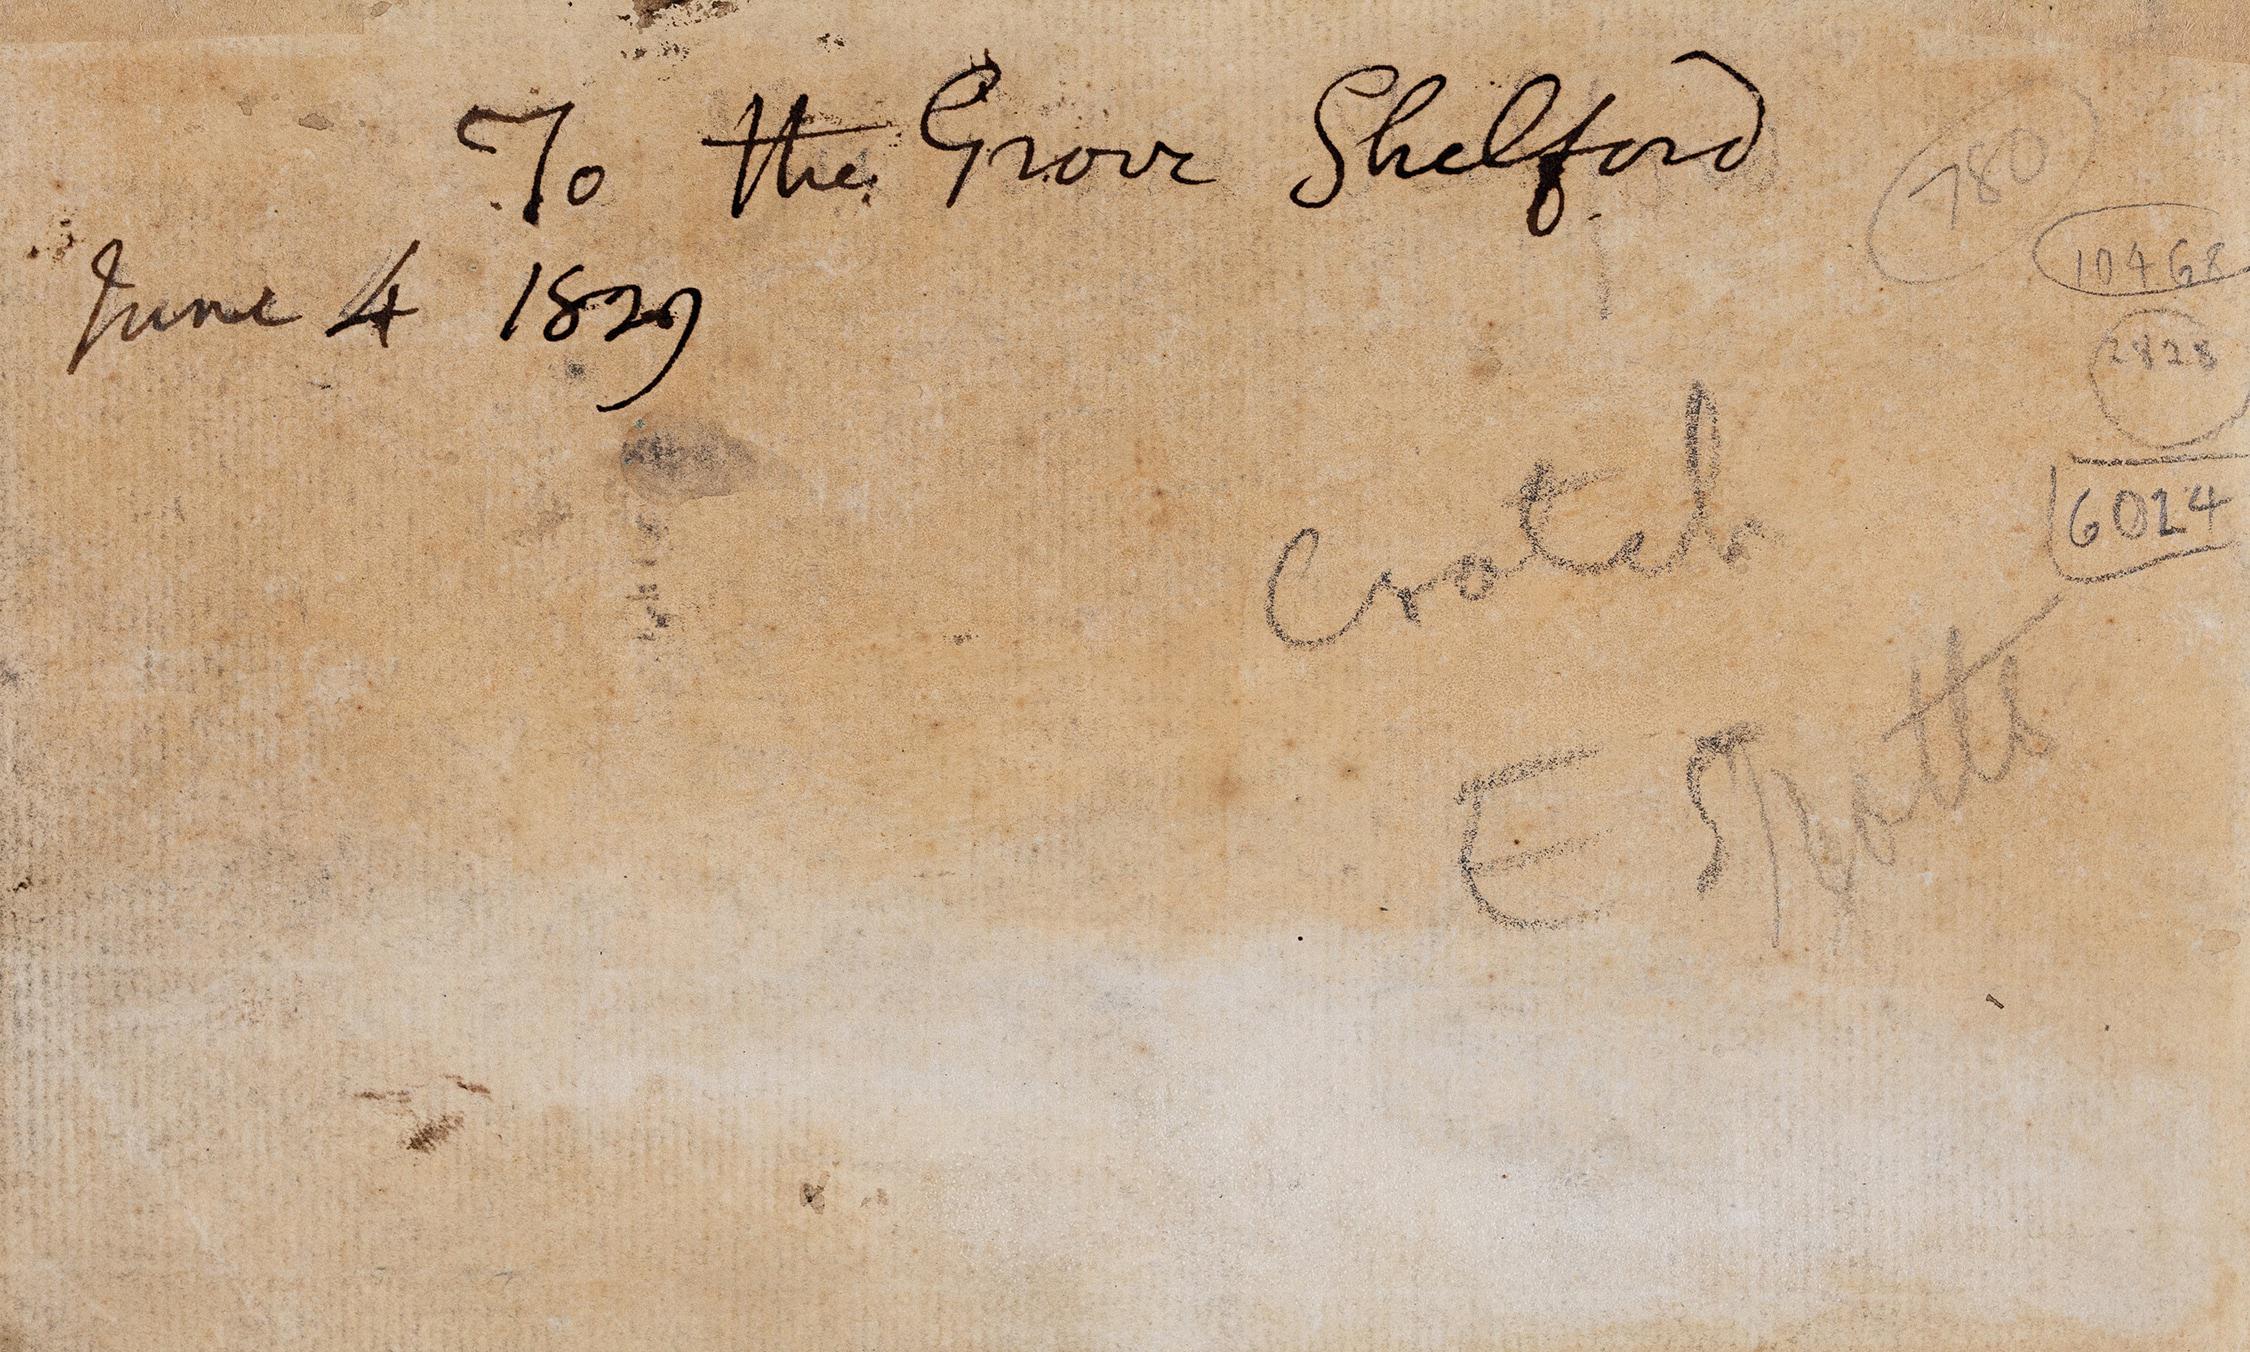 To the Grove Shelford
780
10468
June 4 1829
2828
Crotch
6024
E